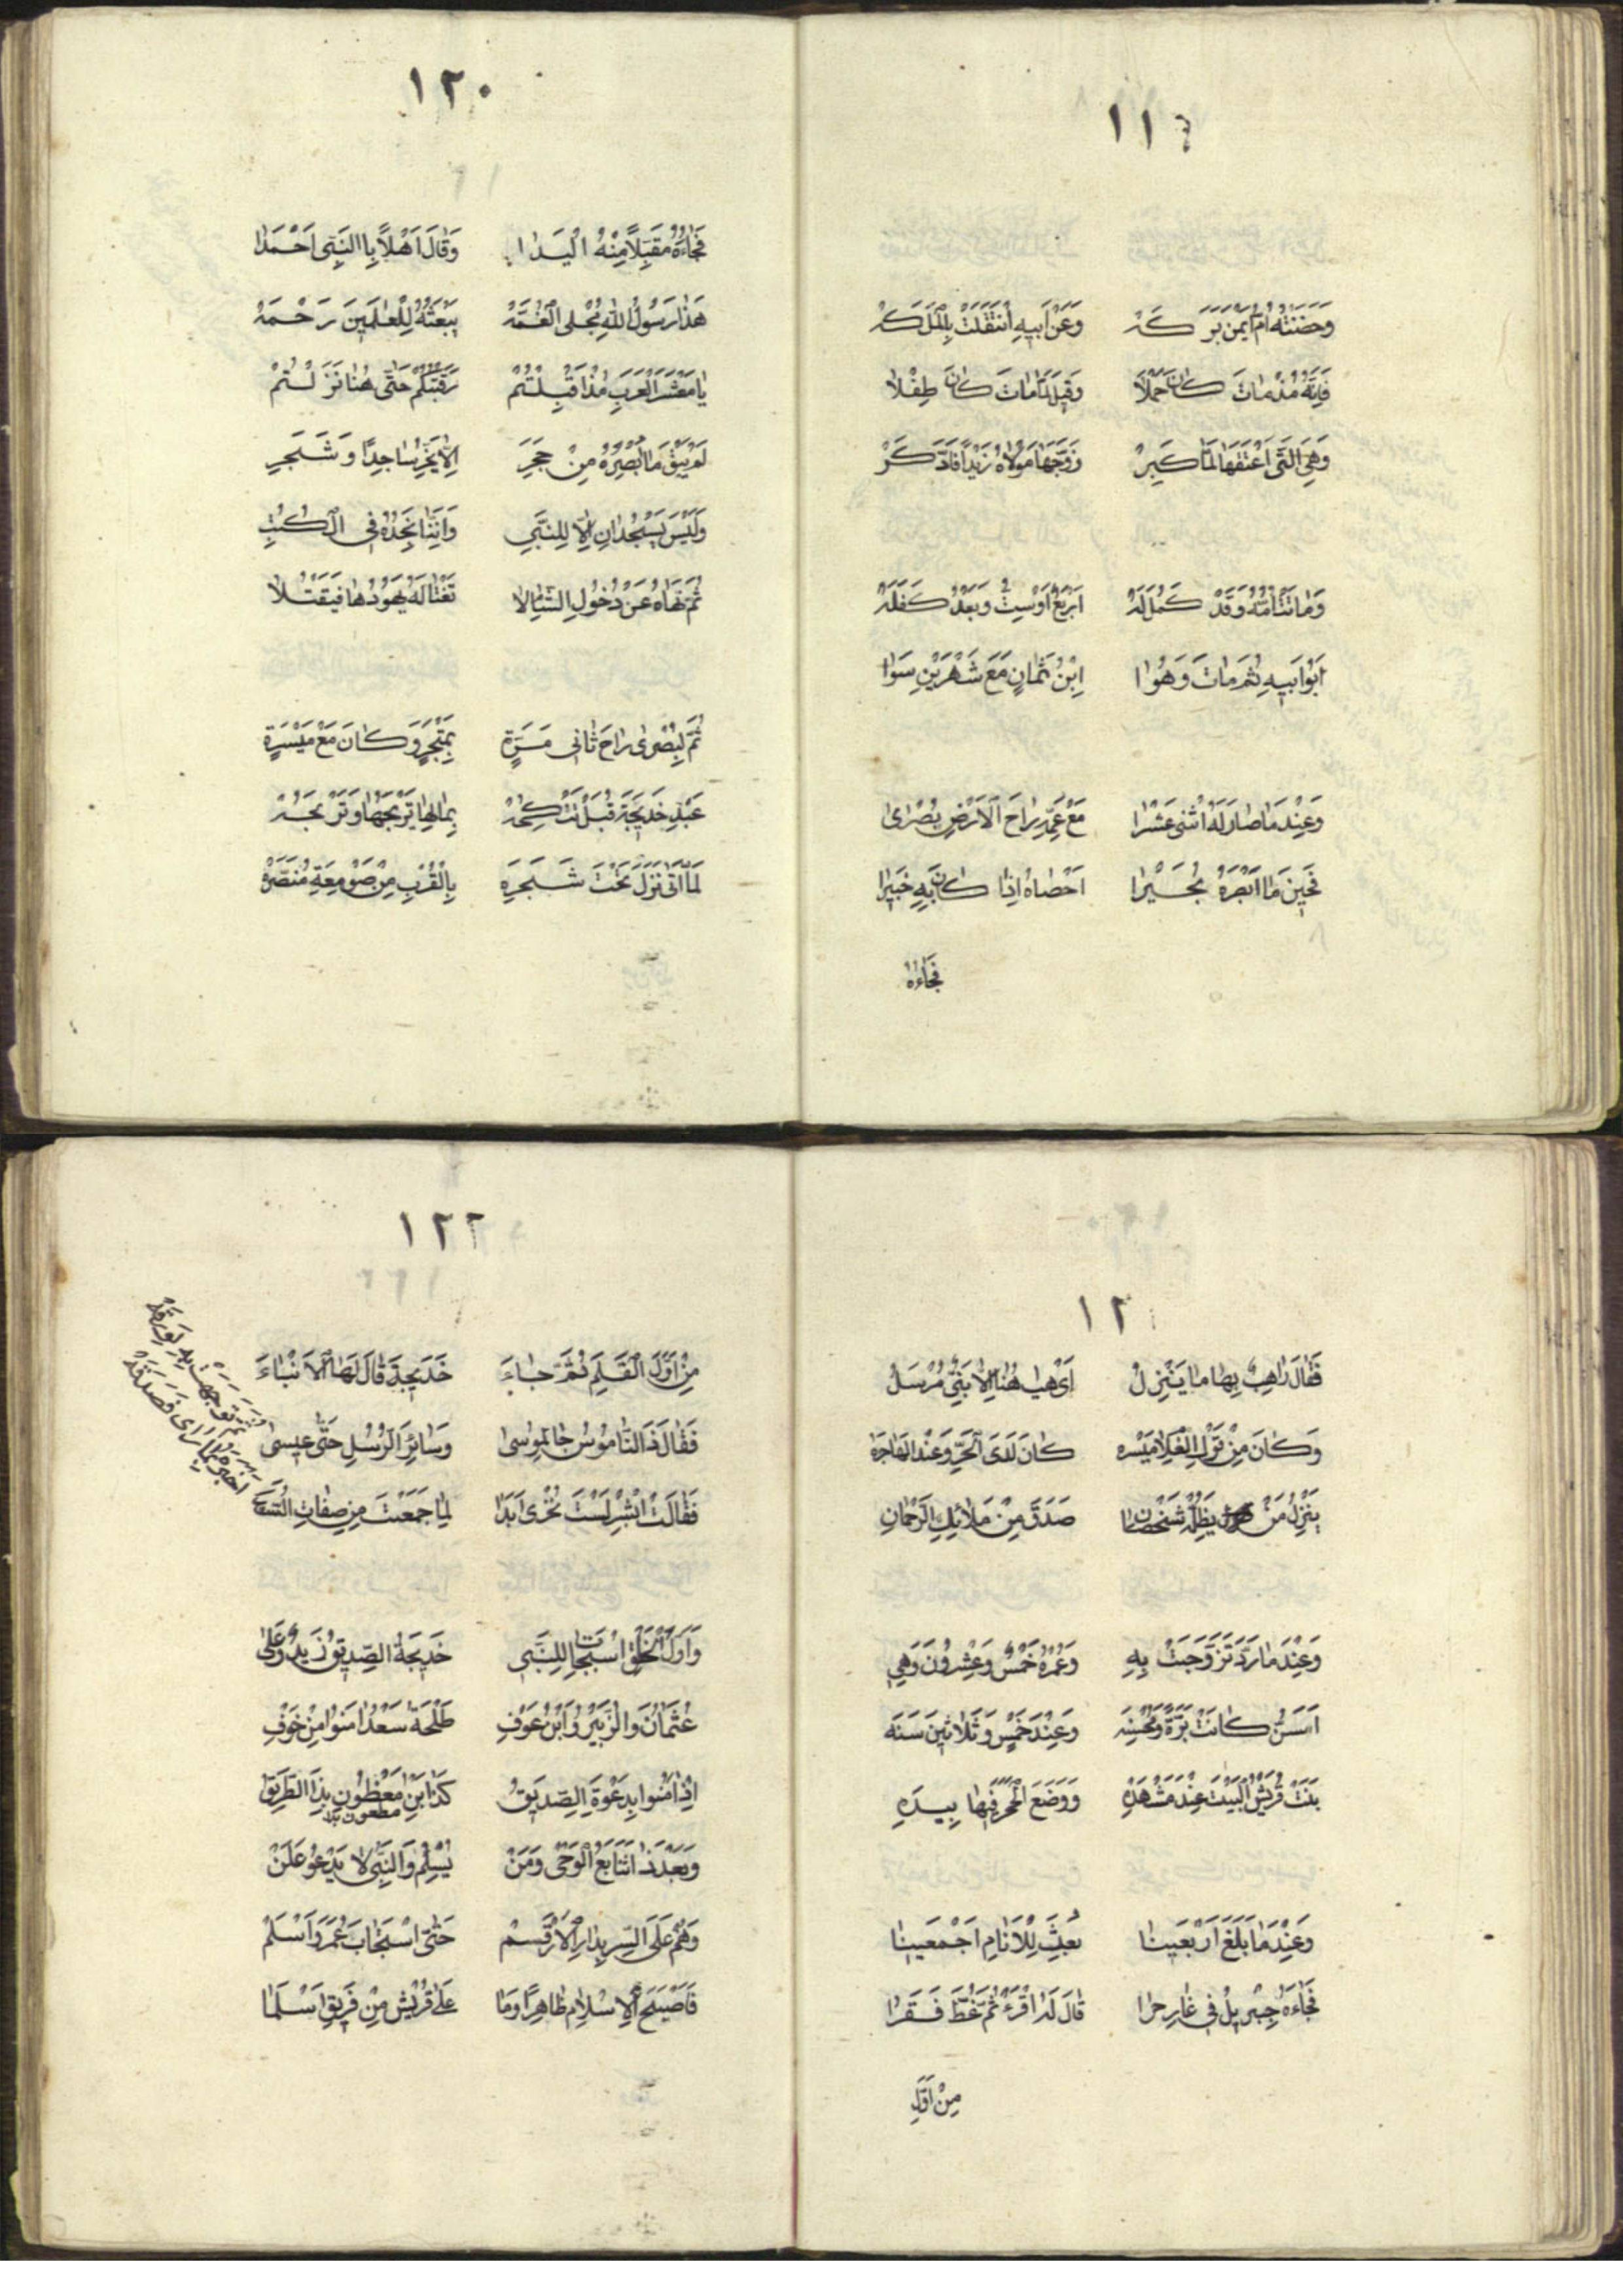 ١١٩
وَحَضَنَتْهُ اُمُّ اَيْمَنْ بَرَكَهْ وَعَنْ اَبِيهِ انْتَقَلَتْ بِالْمَلَكَهْ
فَاِنَّهُ مُذْ مَاتَ كَانَ حَمْلًا وَقِيلَ لَمَّا مَاتَ كَانَ طِفْلًا
وَهِيَ الَّتِي اَعْتَقَهَا لَمَّا كَبِرْ زَوَّجَهَا مَوْلَاهُ زَيْدًا
وَمَاتَتْ اُمُّهُ وَقَدْ كَمُلَ لَهْ اَرْبَعٌ اَوْ سِتٌّ وَبَعْدُ كَفَلَهْ
اَبُوا اَبِيهِ ثُمَّ مَاتَ وَهُوَا اِبْنُ ثَمَانٍ مَعَ شَهْرَيْنِ سَوَا
وَعِنْدَ مَا صَارَ لَهُ اثْنَى عَشَرَا مَعْ عَمِّهِ رَاحَ الْاَرْضِ بُصْرَى
فَحِينَ مَا اَبْصَرَهُ بُحَيْرَا اَحْصَاهُ اِذَا كَانَ بِهِ خَبِيرَا
فَجَاءَهُ
١٢٠
فَجَاءَهُ مُقَبِّلًا مِنْهُ الْيَدَا وَقَالَ اَهْلًا بِاالنَّبِي اَحْمَدَا
هَذَا رَسُولُ اللّٰهِ مُجْلِي الْغُمَّهْ يَبْعَثُهُ لِلْعَالَمِينَ رَحْمَهْ
يَا مَعْشَرَ الْعَرَبِ مُذْ اَقْبَلْتُمْ رَقَبْتُكُمْ حَتَّى هُنَا نَزَلْتُمْ
لَمْ يَبْقَ مَا اُبْصِرُهُ مِنْ حَجَرِ اِلَّا يَخِرُّ سَاجِدًا وَشَجَرِ
وَلَيْسَ يَسْجُدَانِ اِلَّا لِلنَّبِي وَاِنَّنَا نَجِدُهُ فِي الْكُتُبِ
ثُمَّ نَهَاهُ عَنْ دُخُولِ الشَّامِ لَا تَغْتَالَهُ يَهُودُهَا فَيُقْتَلَا
ثُمَّ لِبُصْرَى رَاحَ ثَانِي مَرَّةٍ بِمَتْجَرٍ وَكَانَ مَعْ مَيْسَرَةٍ
عَبْدِ خَدِيجَةَ قُبَلْ تَنْكِحُهْ بِمَالِهَا يَتَّجِهَا وَتَرْبَحُهْ
لَمَّا اَتَى نَزَلَ تَحْتَ شَجَرَهِ بِالْقُرْبِ مِنْ صَوْمِعَةِ مُنَصَّرِهْ
١٢١
فَقَالَ رَاهِبٌ بِهَا مَا يَنْزِلُ اَيْ هَا هُنَا اِلَّا نَبِيٌّ مُرْسَلُ
وَكَانَ مِنْ قَوْلِ الْغُلَامِ مَيْسَرَه كَانَ لَدَى الْحَرِّ وَعَنْدَ الْهَاجِرَهْ
يَنْزِلُ مَنْ يُظِلُّهُ شَخْصَانِ صَدَقَ مِنْ مَلَائِكِ الرَّحْمَانِ
وَعِنْدَ مَا رَدَّ تَزَوَّجَتْ بِهِ وَعُمْرُهُ خَمْسٌ وَعِشْرُونَ وَهِي
اَسَنُّ كَانَتْ بَرَّةً وَمُحْسِنَه وَعِنْدَ خَمْسٍ وَثَلَاثِينَ سَنَه
بَنَتْ قُرَيْشُ الْبَيْتَ عِنْدَ مَشْهَدِهِ وَوَضَعَ الْحَجَرَ فِيهَا بِيَدِهِ
وَعِنْدَمَا بَلَغَ اَرْبَعِينَا بُعِثَ لِلْاَنَامِ اَجْمَعِينَا
فَجَاءَهُ جِبْرِيلُ فِي غَارِ حِرَا قَالَ لَهُ اقْرَءْ ثُمَّ غَطَّ فَقَرَا
مِنْ اَوَّلِ
١٢٢
مِنْ اَوَّلِ الْقَلَمِ ثُمَّ جَاءَ خَدِيجَةَ قَالَ لَهَا الْاَنْبَاءَ
فَقَالَ ذَا النَّامُوسُ جَا لِمُوسَى وَسَائِرِ الرُّسُلِ حَتَّى عِيسَى
فَقَالَتْ ابْشِرْ لَسْتَ تُخْزَى اَبَدَا لِمَا جَمَعْتَ مِنْ صِفَاتِ
ثُمَّ تَوَجَّهَتْ بِهِ لِوَرَقَهْ
اَخْبَرَهُ بِمَا رَاى فَصَدَّقَهْ
وَاَوَّلُ الْخَلْقِ اسْتَجَابَ لِلنَّبِي خَدِيجَةُ الصِّدِّيقُ زَيْدٌ وَعَلِي
عُثْمَانُ وَالزُّبَيْرُ وَابْنُ عَوْفِ طَلْحَةُ سَعْدٌ اَمَنُوا مِنْ خَوْفِ
اِذْ اَمَنُوا بِدَعْوَةِ الصِّدِّيقُ كَذَا ابْنُ مَعْظُونٍ بِذَا الطَّرِيقُ
مطعون
وَبَعْدَ ذَا تَتَابَعَ الْوَحْيُ وَمَنْ يُسْلِمُ وَالنَّبِيُّ لَا يَدْعُو عَلَنْ
وَهُمْ عَلَى السِّرِّ بِدَارِ الْاَرْقَمْ حَتَّى اسْتَجَابَ عُمَرُ وَاَسْلَمْ
فَاَصْبَحَ الْاِسْلَامُ ظَاهِرًا وَمَا عَلَى قُرَيْشٍ مِنْ فَرِيقٍ اَسْلَمَا